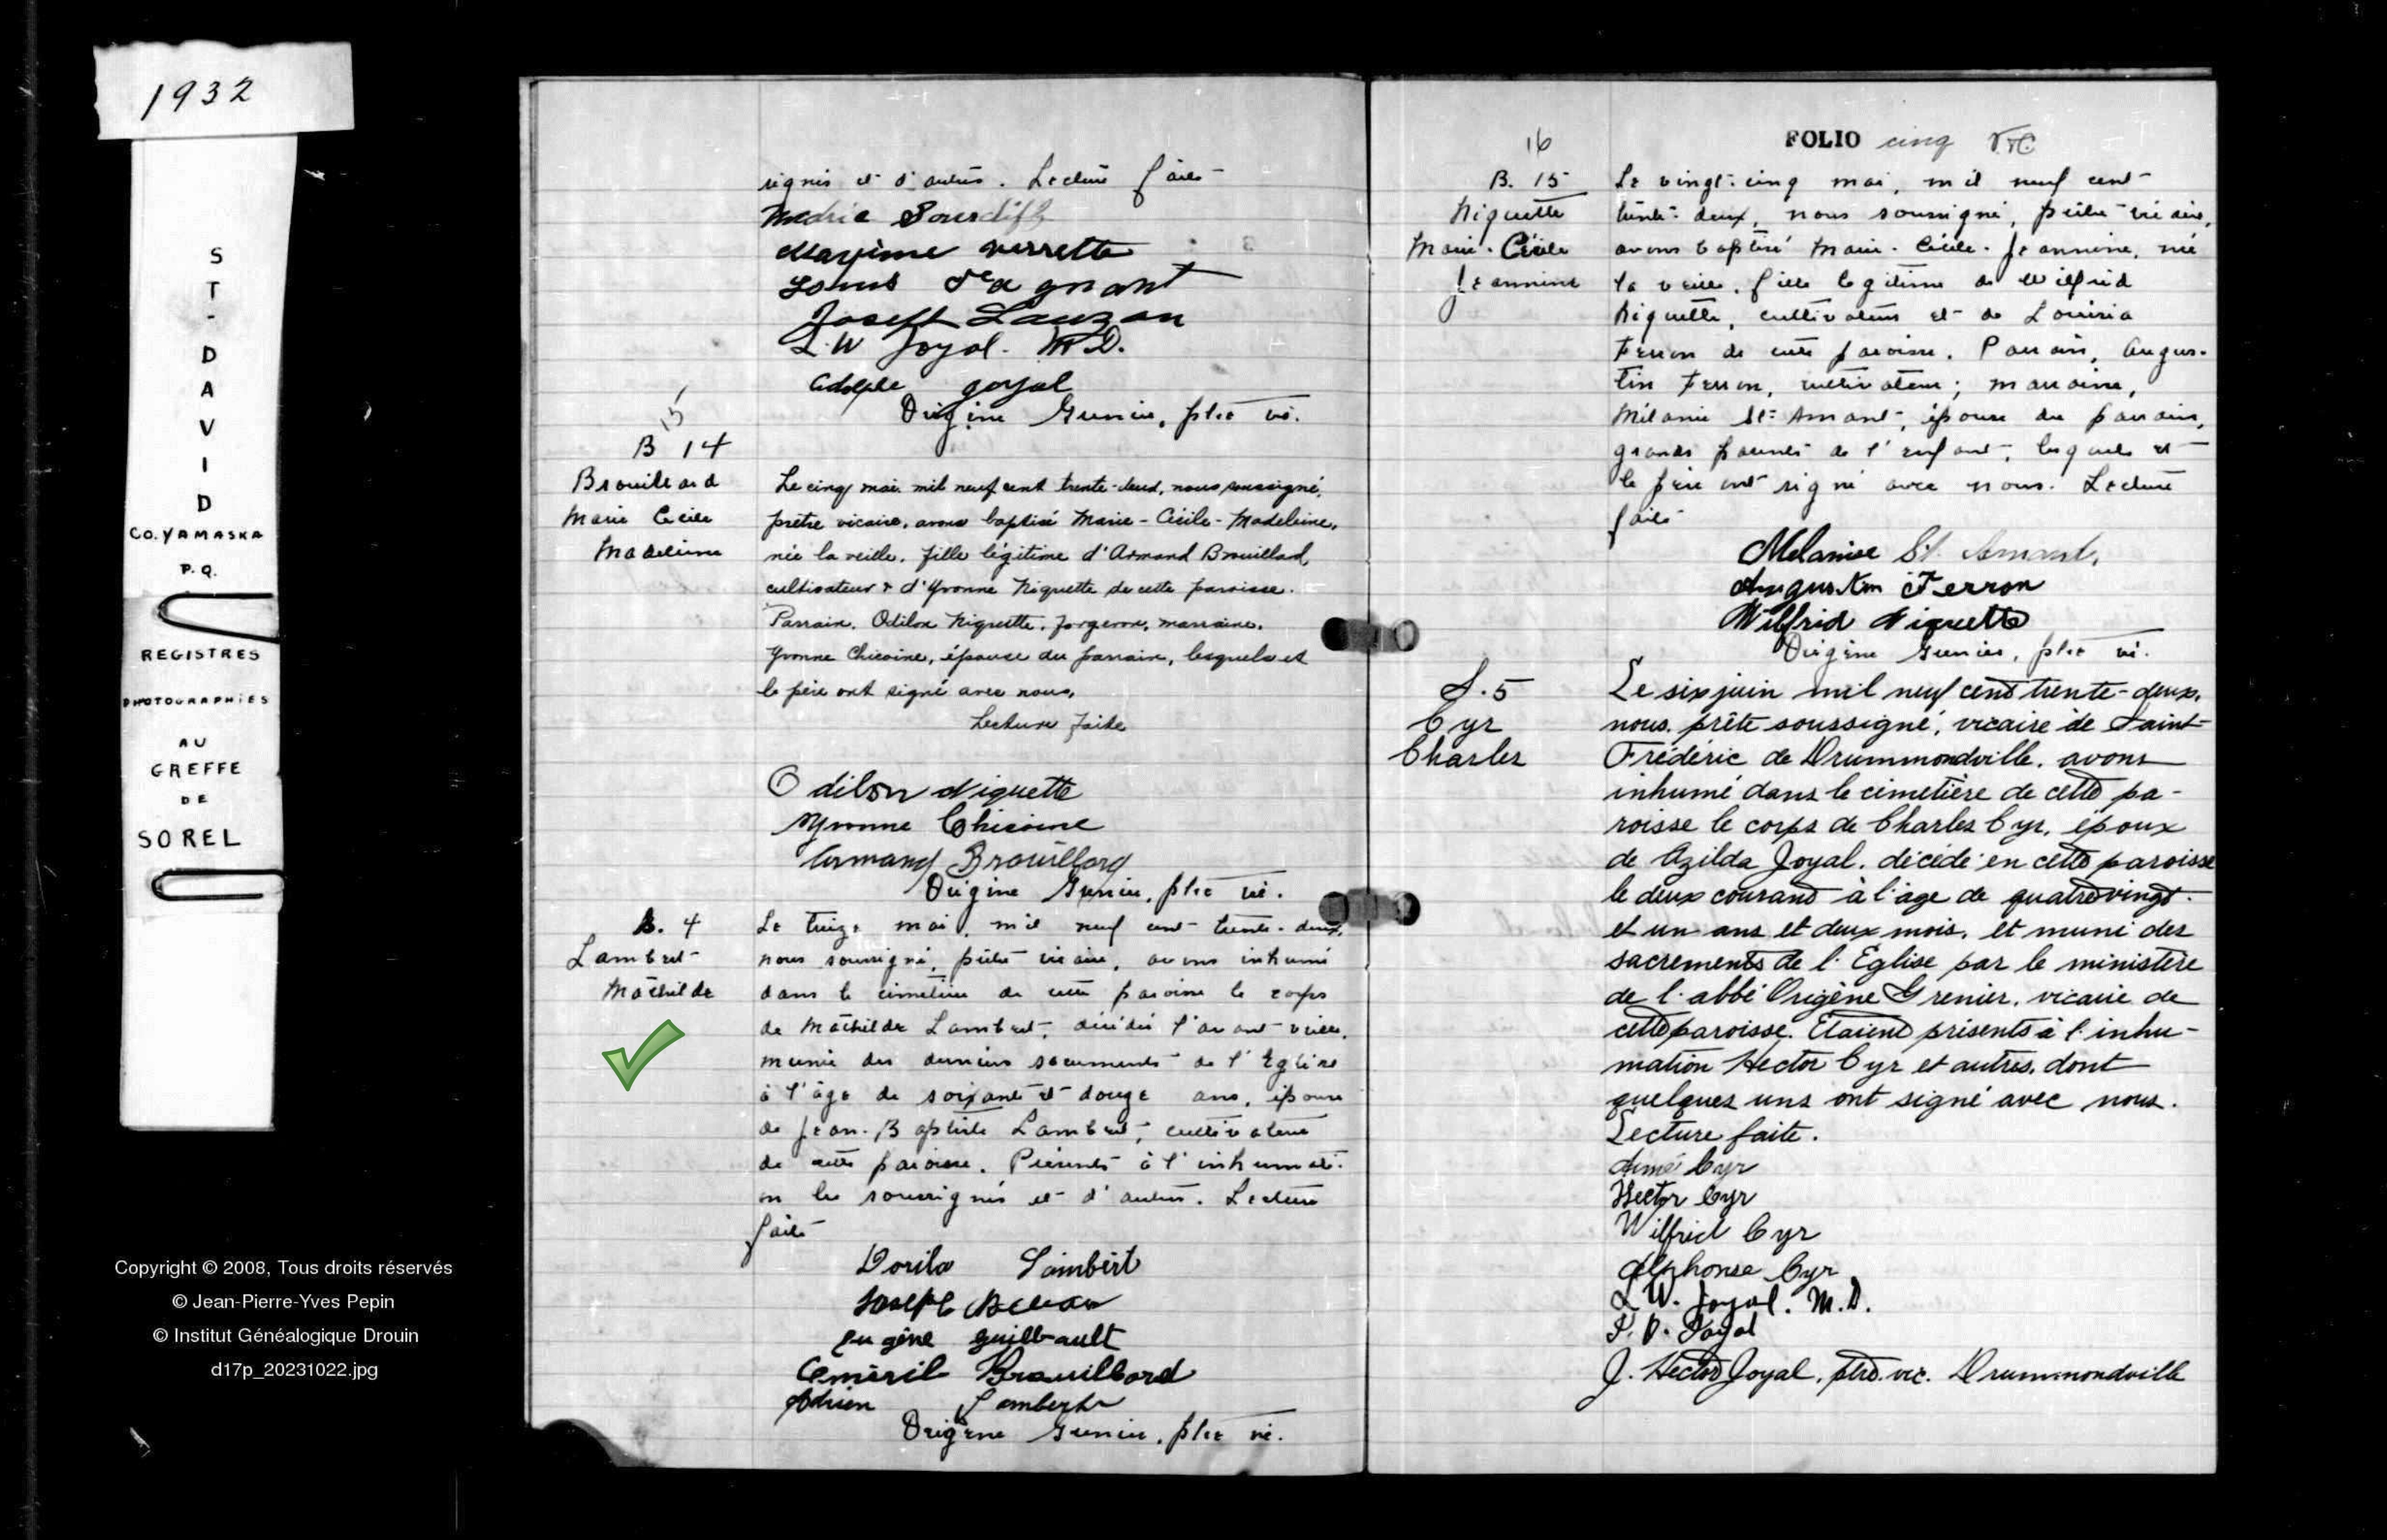 1932
ST-DAVID
CO. YAMASKA
P.Q.
REGISTRES
PHOTOGRAPHIÉS
AU
GREFFE
DE
SOREL
Copyright © 2008, Tous droits réservés
© Jean-Pierre-Yves Pepin
© Institut Généalogique Drouin
d17p_20231022.jpg
signés et d'autres. Lecture faite
Maxime Verrette
Joseph Lauzon
L. W Joyal. M.D.
Adolphe Joyal
Origène Grenier, ptre vic.
15
B 14
Brouillard
Marie Cecile
Madeleine
Le cinq mai mil neuf cent trente-deux, nous soussigné,
prêtre vicaire, avons baptisé Marie-Cécile-Madeleine,
née la veille, fille légitime d'Armand Brouillard,
cultivateur & d'Yvonne Niquette de cette paroisse.
Parrain, Odilon Niquette, forgeron, marraine,
Yvonne Chicoine, épouse du parrain, lesquels et
le père ont signé avec nous.
Lecture faite
Odilon Niquette
Yvonne Chicoine
Armand Brouillard
Origène Grenier, ptre vic.
S. 4
Lambert
Mathilde
Le treize mai, mil neuf cent trente-deux,
nous soussigné, prêtre vicaire, avons inhumé
dans le cimetière de cette paroisse le corps
de Mathilde Lambert, décédée l'avant veille,
munie des derniers sacrements de l'Eglise
à l'âge de soixante et douze ans, épouse
de Jean-Baptiste Lambert, cultivateur
de cette paroisse. Présents à l'inhumati-
on les soussignés et d'autres. Lecture
faite
Dorila Lambert
Joseph
Eugène Guilbault
Brouillard
Adrien Lambert
Origène Grenier, ptre vic.
16
FOLIO cinq
B. 15
Niquette
Marie-Cécile
Jeannine
Le vingt-cinq mai, mil neuf cent
trente-deux, nous soussigné, prêtre vicaire,
avons baptisé Marie-Cécile-Jeannine, née
la veille, fille légitime de Wilfrid
Niquette, cultivateur et de
Ferron de cette paroisse. Parrain, Augus-
tin Ferron, cultivateur; marraine,
Mélanie St-Amant, épouse du parrain,
grands parents de l'enfant, lesquels et
le père ont signé avec nous. Lecture
faite
Melanise St. Amant,
Augustin Ferron
Wilfrid Niquette
Origène Grenier, ptre vic.
S. 5
Cyr
Charles
Le six juin mil neuf cent trente-deux,
nous, prêtre soussigné, vicaire de Saint-
Frédéric de Drummondville, avons
inhumé dans le cimetière de cette pa-
roisse le corps de Charles Cyr, époux
de Azilda Joyal, décédé en cette paroisse
le deux courant à l'âge de quatre vingt-
et un ans et deux mois, et muni des
sacrements de l'Eglise par le ministère
de l'abbé Origène Grenier, vicaire de
cette paroisse. Etaient présents à l'inhu-
mation Hector Cyr et autres, dont
quelques uns ont signé avec nous.
Lecture faite.
Aimé Cyr
Hector Cyr
Wilfrid Cyr
Alphonse Cyr
L W. Joyal. M.D.
Joyal
J. Hector Joyal, ptre. vic. Drummondville